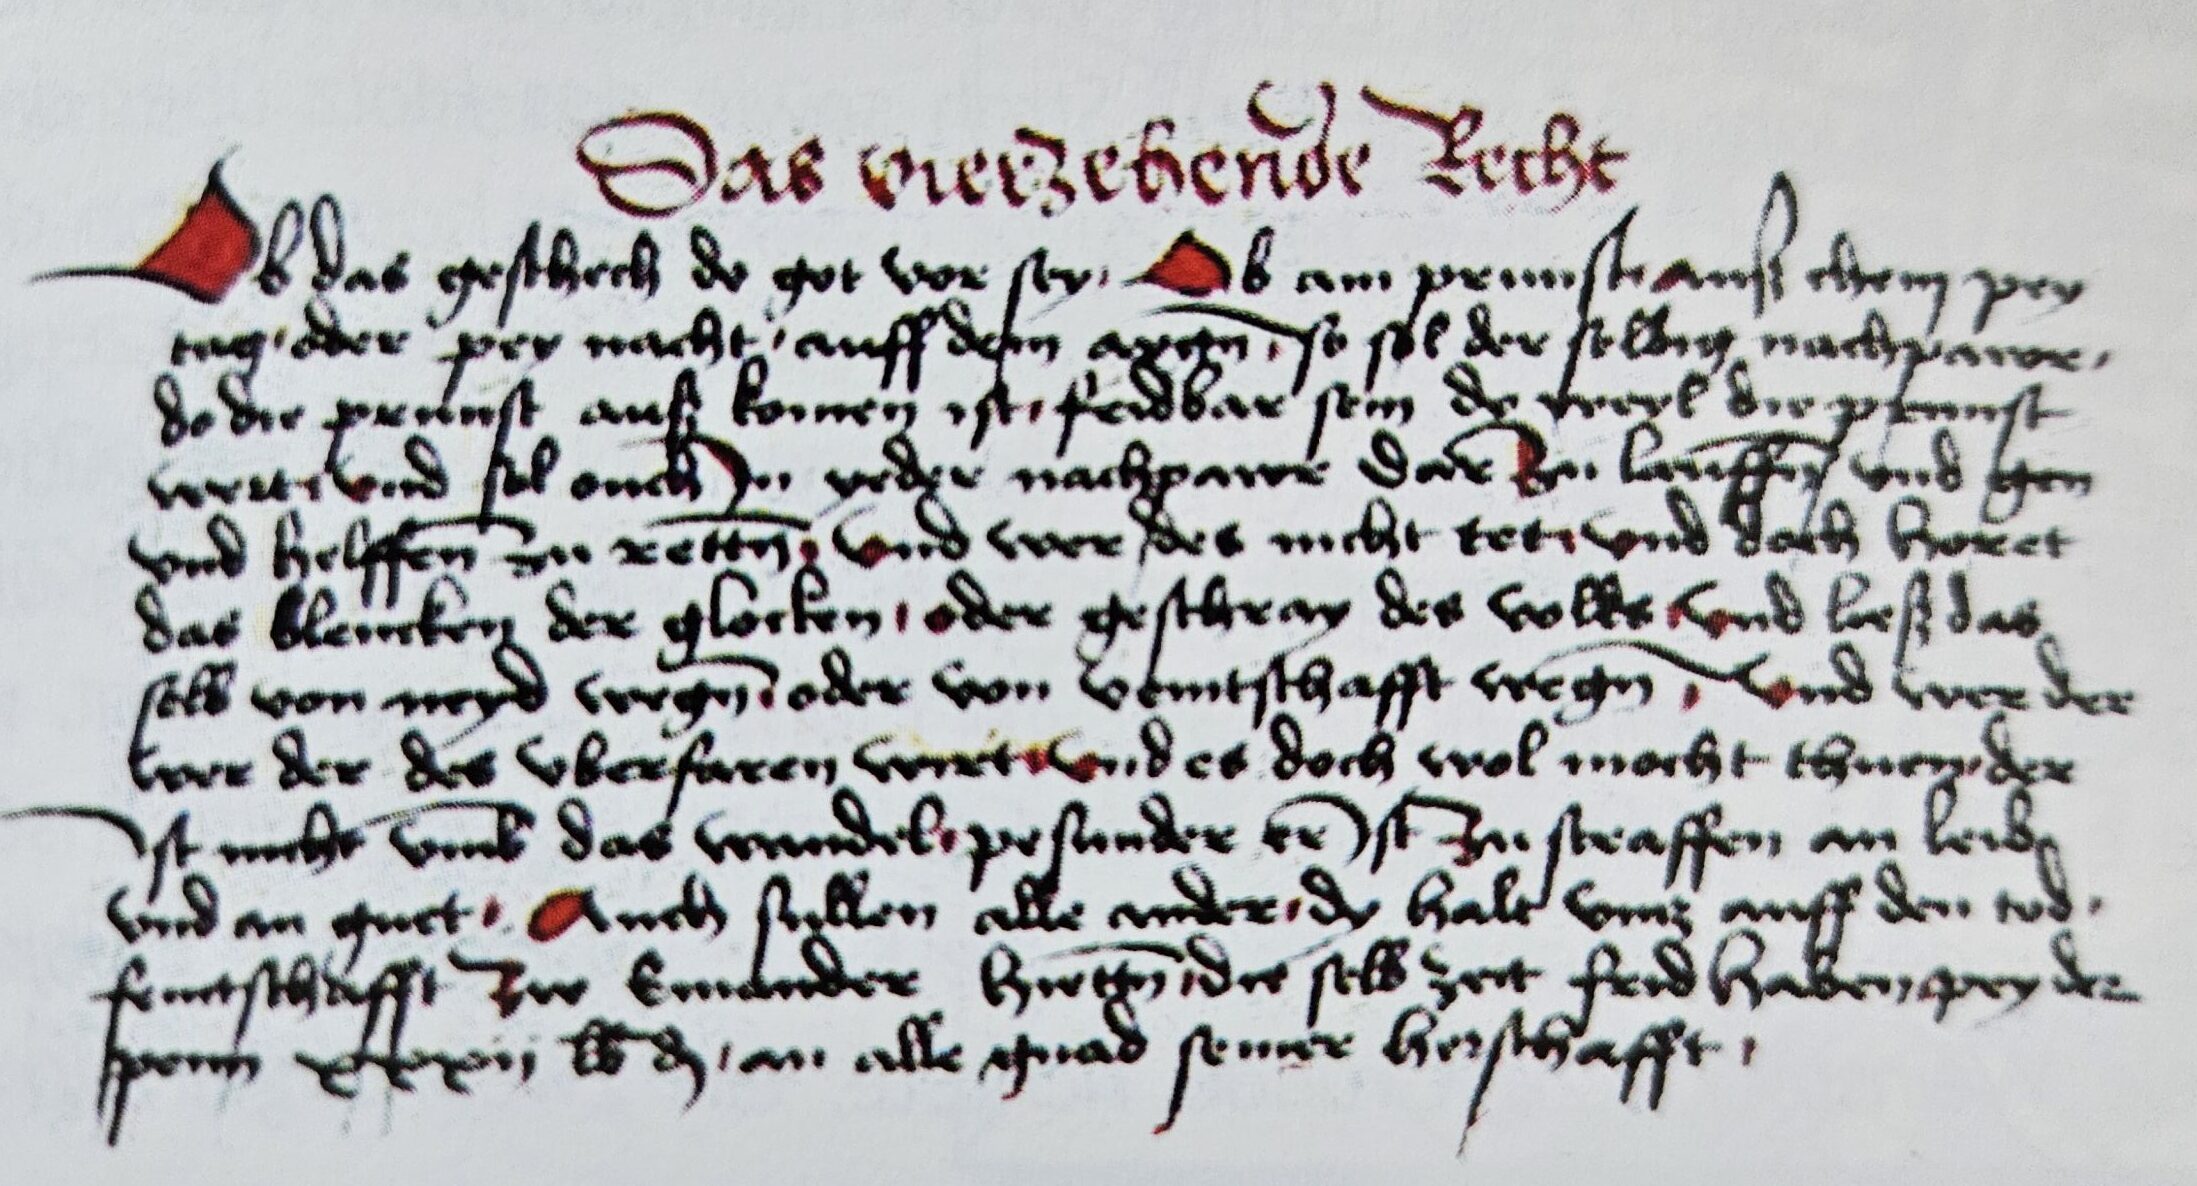 Das vierzehende Recht
Ob das geschech do got vor sey. Ob ain prunst auß chem pey
tag. oder pey nacht. auff dem aygn. so sol der selbig nachpawr.
do die prunst auß komen ist. freidbar sein dy weyl die prunst
wert. vnd sol auch Jn yeder nachpawr dar Zu lauffen vnd gen
vnd helffen zu rettn. vnd wer des nicht tet. vnd doch horet
das klencken der glocken. oder geschray des volks. vnd ließ das
selb von neyd wegn. oder von veintschafft wegn. vnd wer der
wer der des vberfaren wirt. vnd es doch wol mocht thuen. der
Jst nicht vmb das wandel. pesunder er Jst Zu straffen an leib
vnd an guet. Auch sullen alle ander. dy halt vmb auff den tod.
feintschafft Zw Einander hiettn. die selb zeit frid haben. pey der
penn xxxij lb ₰. an alle gnad seiner herschafft.